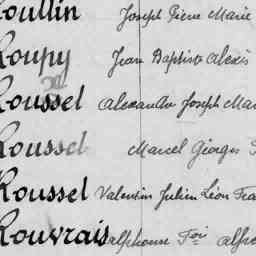 Roullin Joseph Pierre Marie
Roupy Jean Baptiste Alexis
Roussel Alexandre Joseph Mar
Roussel Marcel Georges
Roussel Valentin Julien Léon Fra
Rouvrais Alphonse Foi Alfre